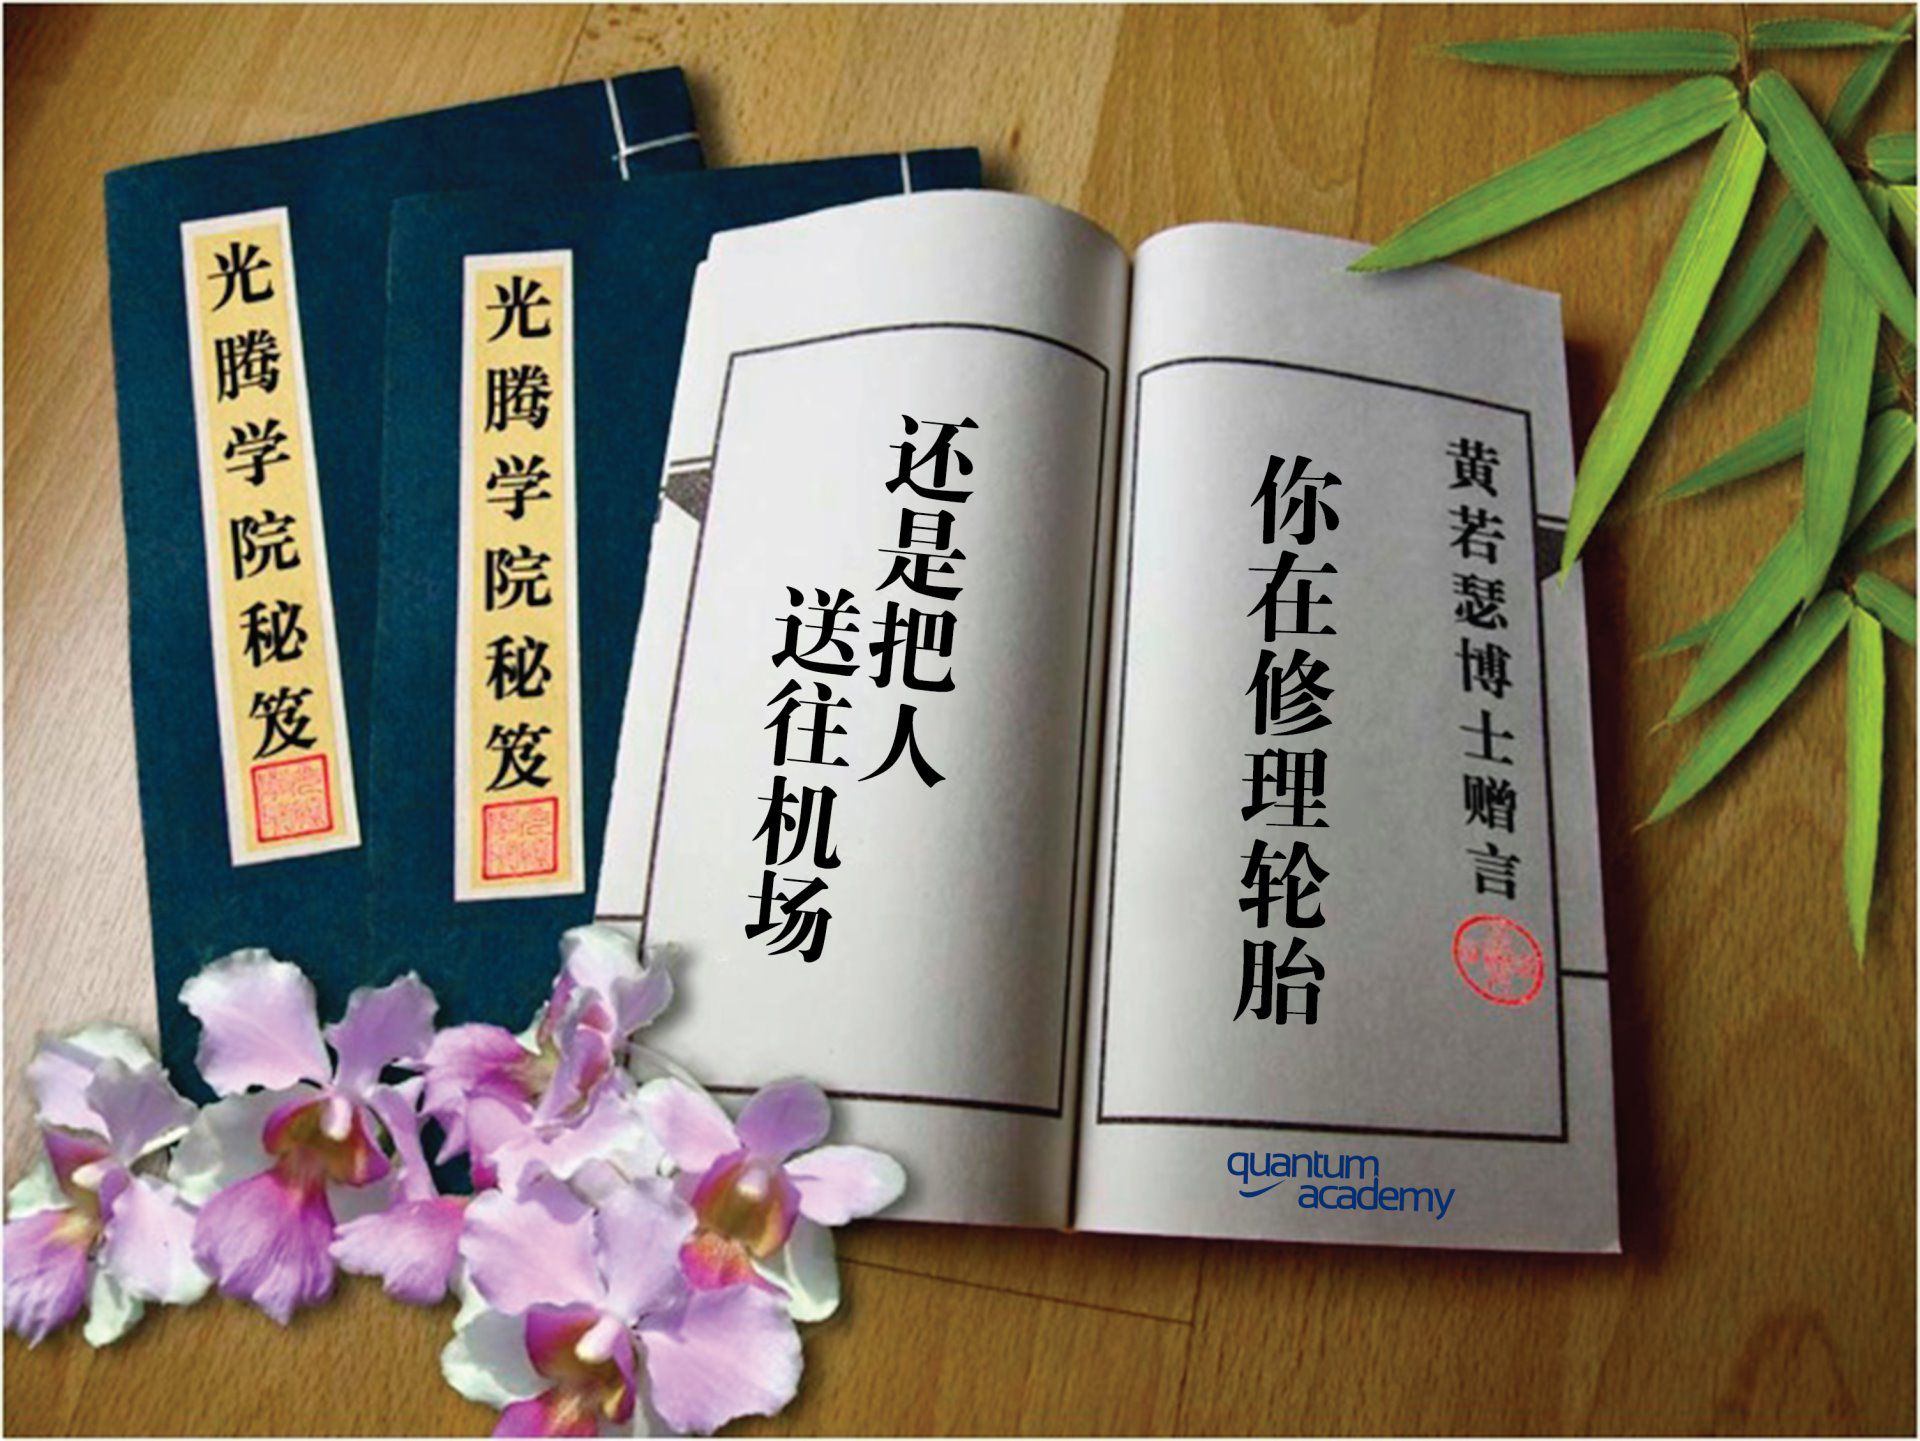 光腾学院秘笈
光腾学院秘笈
黄若瑟博士赠言
你在修理轮胎
还是把人
送往机场
quantum
academy